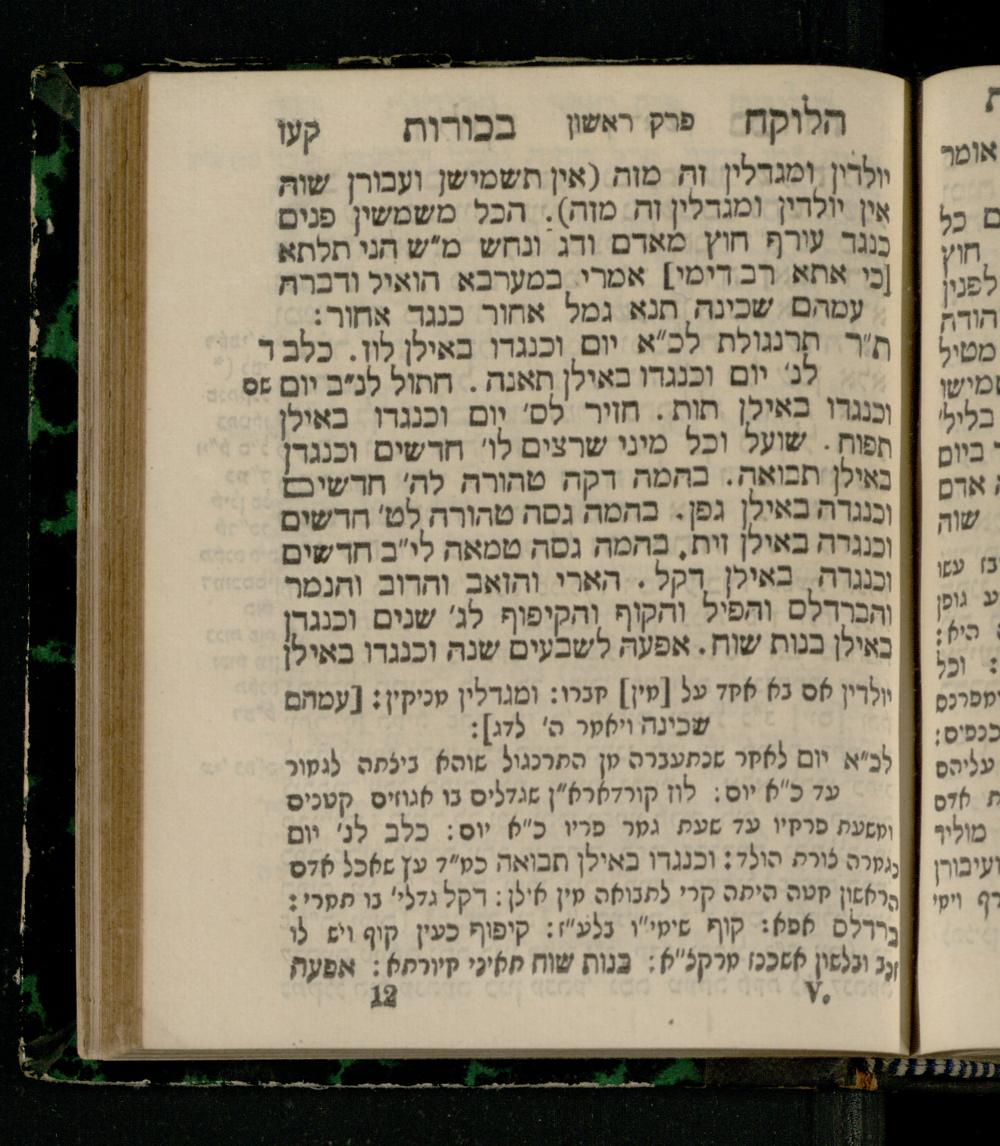 הלוקח פרק ראשון בכורות קעו
יולדין ומגדלין זה מזה (אין תשמישן ועבורן שוה
אין יולדין ומגדלין זה מזה). הכל משמשין פנים
כנגד עורף חוץ מאדם ודג ונחש מ״ש הני תלתא
[כי אתא רב דימי] אמרי במערבא הואיל ודברה
עמהם שכינה תנא גמל אחור כנגד אחור:
ת״ר תרנגולת לכ״א יום וכנגדו באילן לוז. כלב ד
לנ׳ יום וכנגדו באילן תאנה. חתול לנ״ב יום שם
וכנגדו באילן תות. חזיר לס׳ יום וכנגדו באילן
תפוח. שועל וכל מיני שרצים לו׳ חדשים וכנגדן
באילן תבואה. בהמה דקה טהורה לה׳ חדשים
וכנגדה באילן גפן. בהמה גסה טהורה לט׳ חדשים
וכנגדה באילן זית. בהמה גסה טמאה לי״ב חדשים
וכנגדה באילן דקל. הארי והזאב והדוב והנמר
והברדלס והפיל והקוף והקיפוף לג׳ שנים וכנגדן
באילן בנות שוח. אפעה לשבעים שנה וכנגדו באילן
יולדין אם בא אחד על [מין] חברו: ומגדלין מניקין: [עמהם
שכינה ויאמר ה׳ לדג]:
לכ״א יום לאחר שנתעברה מן התרנגול שוהא ביצתה לגמור
עד כ״א יום: לוז קורדארא״ן שגדלים בו אגוזים קטנים
ומשעת פרחיו עד שעת גמר פריו כ״א יום: כלב לנ׳ יום
נגמרה צורת הולד: וכנגדו באילן תבואה כמ״ד עץ שאכל אדם
הראשון חטה היתה קרי לתבואה מין אילן: דקל גדלי׳ בו תמרי:
ברדלס אפא: קוף שימי״ו בלע״ז: קיפוף כעין קוף ויש לו
זנב ובלשון אשכנז מרקצ״א: בנות שוח תאיני חיורתא: אפעה
V. 12